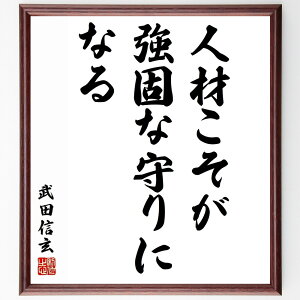 人材こそが
強固な守りに
なる
武田信玄